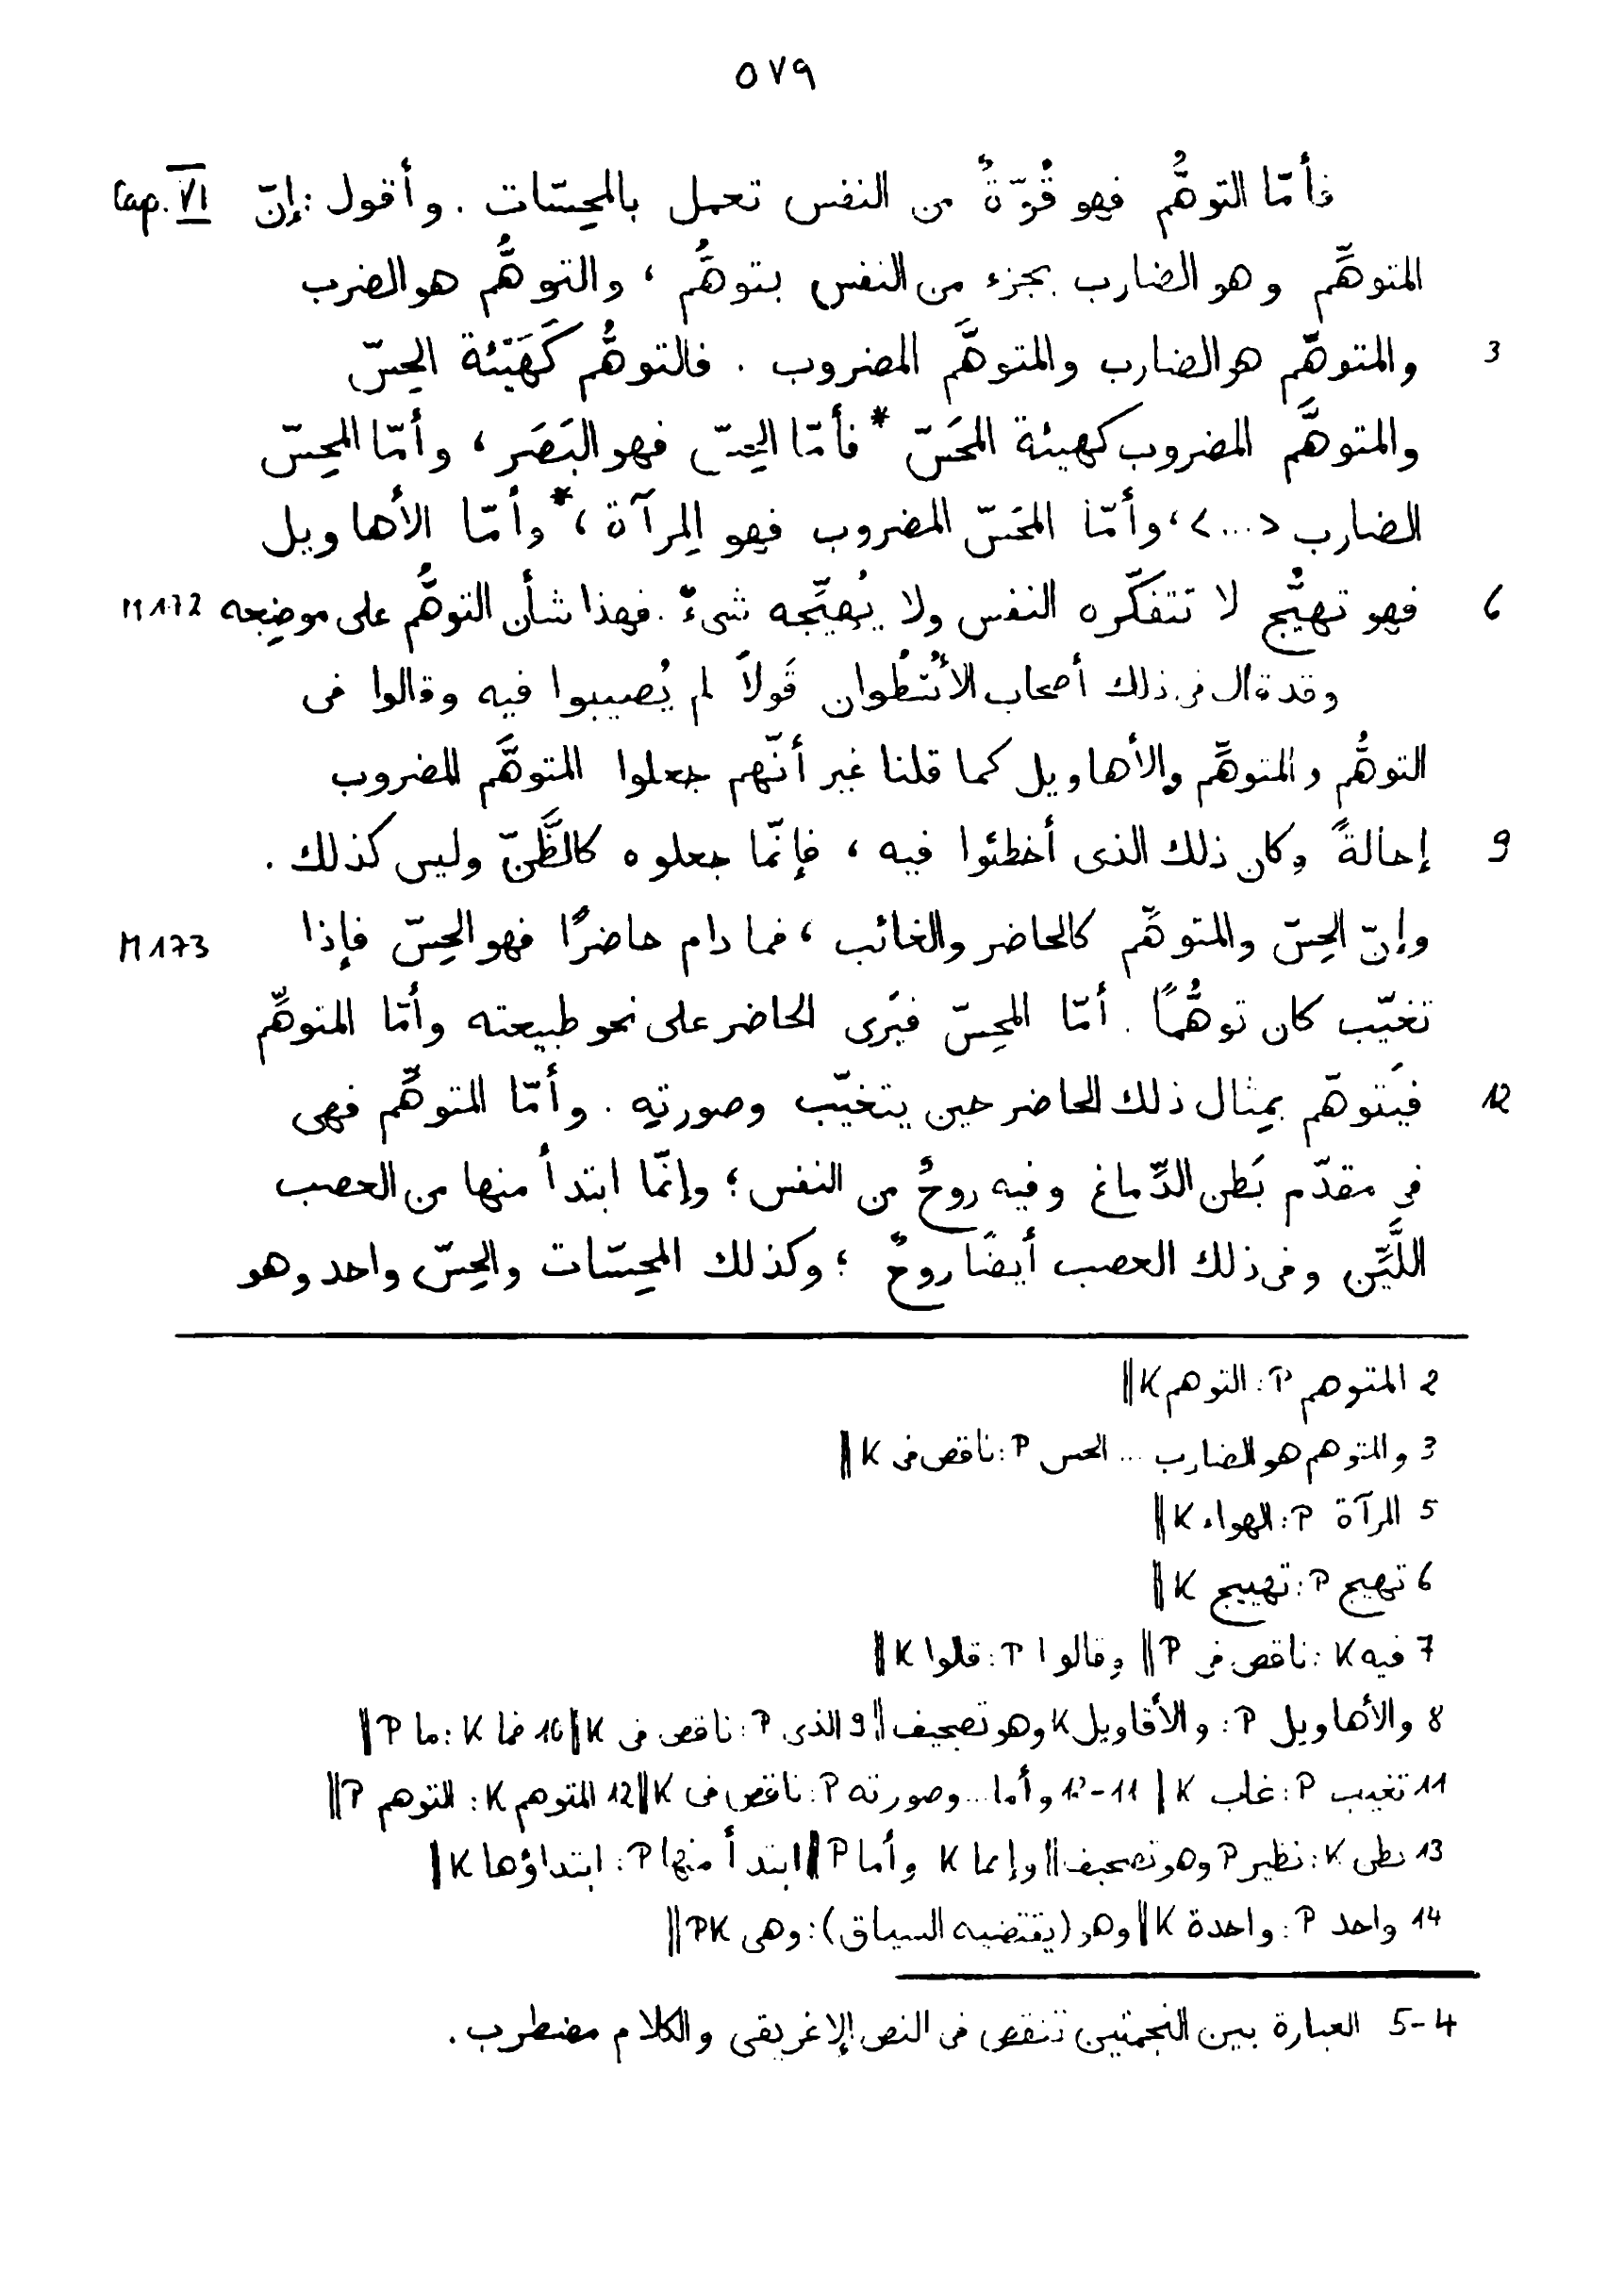 ٥٧٩
فأمّا التوهُّم فهو قُوّةٌ من النفس تعمل بالمحِسّات . وأقول : إنّ Cap. VI
المتوهِّم وهو الضارب بجزء من النفس بتوهُّم ، والتوهُّم هو الضرب
3 والمتوهِّم هو الضارب والمتوهَّم المضروب . فالتوهُّم كَهَيْئة الحِسّ
والمتوهَّم المضروب كهيئة المحَسّ * فأمّا الحِسّ فهو البَصَر ، وأمّا المحِسّ
الضارب <...> ، وأمّا المحَسّ المضروب فهو المِرآة ،* وأمّا الأهاويل
6 فهو تهيُّج لا تتفكّره النفس ولا يُهيِّجه شىءٌ . فهذا شأن التوهُّم على موضِعه M 172
وقد قال فى ذلك أصحاب الأُسْطُوان قَولاً لم يُصيبوا فيه وقالوا فى
التوهُّم والمتوهِّم والأهاويل كما قلنا غير أنّهم جعلوا المتوهَّم المضروب
9 إحالةً وكان ذلك الذى أخطئوا فيه ، فإنّما جعلوه كالظَّنّ وليس كذلك .
وإنّ الحِسّ والمتوهِّم كالحاضر والغائب ، فما دام حاضرًا فهو الحِسّ فإذا M 173
تغيّب كان توهُّمًا . أمّا المحِسّ فيَرى الحاضر على نحو طبيعته وأمّا المتوهِّم
12 فيَتوهّم بمِثال ذلك الحاضر حين يتغيّب وصورتِه . وأمّا المتوهِّم فهى
فى مقدّم بَطن الدِّماغ وفيه روحٌ من النفس ؛ وإنّما ابتدأ منها من العصب
اللَّيِّن وفى ذلك العصب أيضًا روحٌ ؛ وكذلك المحِسّات والحِسّ واحد وهو
2 المتوهم P : التوهم K ||
3 والمتوهم هو الضارب ... الحس P : ناقص فى K ||
5 المرآة P : الهواء K ||
6 تهيج P : تهييج K ||
7 فيه K : ناقص فى P || وقالوا P : قلوا K ||
8 والأهاويل P : والأقاويل K وهو تصحيف || 9 الذى P : ناقص فى K || 10 فما K : ما P ||
11 تغيب P : غاب K | 11-12 وأما ... وصورته P : ناقص فى K || 12 المتوهم K : التوهم P ||
13 بطن K : نظير P وهو تصحيف || وإنما K وأما P || ابتدأ منها P : ابتداؤها K ||
14 واحد P : واحدة K || وهو (يقتضيه السياق) : وهى PK ||
4-5 العبارة بين النجمتين تنقص فى النص الإغريقى والكلام مضطرب .